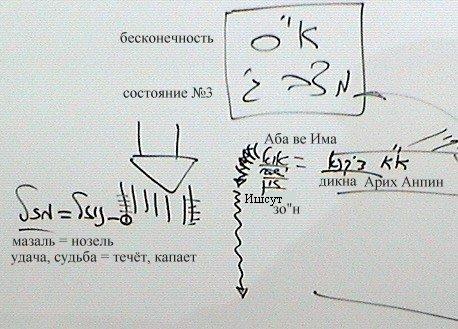 бесконечность
א"ס
מצב ג'
состояние №3
Аба ве Има
א"א דיקנא = או"א
дикна Арих Анпин
Ишсут
зо"н
נוזל = מזל
мазаль = нозель
удача, судьба = течёт, капает